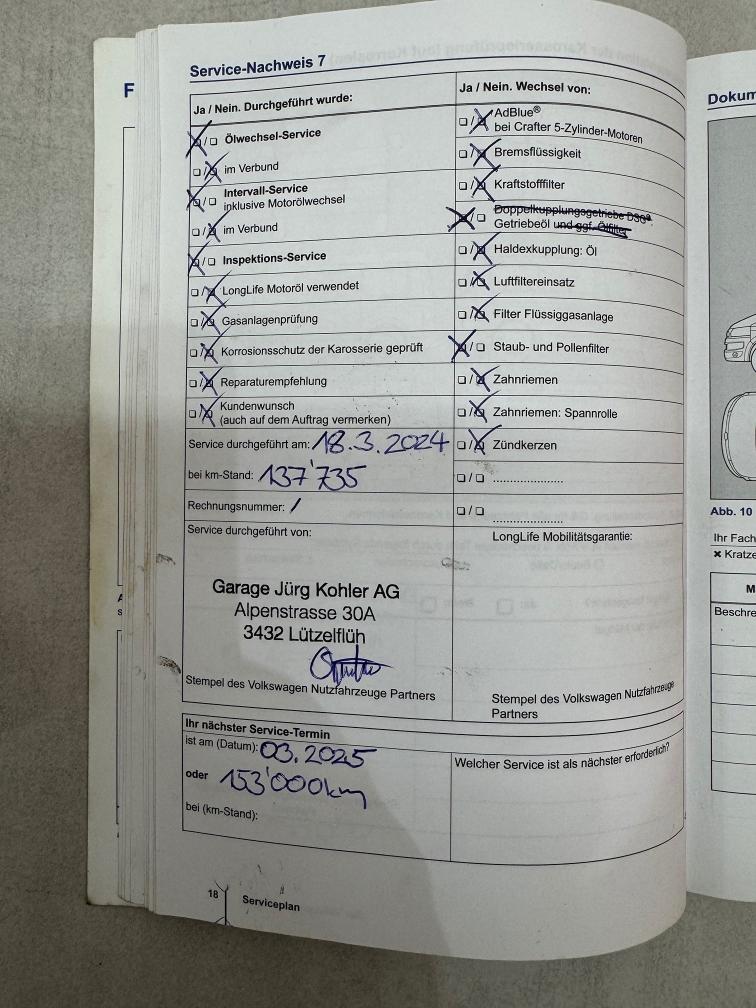 Service-Nachweis 7
Ja / Nein. Durchgeführt wurde:
☒/☐ Ölwechsel-Service
☐/☒ im Verbund
☒/☐ Intervall-Service
inklusive Motorölwechsel
☐/☒ im Verbund
☒/☐ Inspektions-Service
☐/☒ LongLife Motoröl verwendet
☐/☒ Gasanlagenprüfung
☐/☒ Korrosionsschutz der Karosserie geprüft
☐/☒ Reparaturempfehlung
☐/☒ Kundenwunsch
(auch auf dem Auftrag vermerken)
Service durchgeführt am: 18.3.2024
bei km-Stand: 137'735
Rechnungsnummer: /
Service durchgeführt von:
Garage Jürg Kohler AG
Alpenstrasse 30A
3432 Lützelflüh
Stempel des Volkswagen Nutzfahrzeuge Partners
Ja / Nein. Wechsel von:
☐/☒ AdBlue®
bei Crafter 5-Zylinder-Motoren
☐/☒ Bremsflüssigkeit
☐/☒ Kraftstofffilter
☒/☐ Doppelkupplungsgetriebe DSG®:
Getriebeöl und ggf. Ölfilter
☐/☒ Haldexkupplung: Öl
☐/☒ Luftfiltereinsatz
☐/☒ Filter Flüssiggasanlage
☒/☐ Staub- und Pollenfilter
☐/☒ Zahnriemen
☐/☒ Zahnriemen: Spannrolle
☐/☒ Zündkerzen
☐/☐ ......................
☐/☐ ......................
LongLife Mobilitätsgarantie:
Stempel des Volkswagen Nutzfahrzeuge
Partners
Ihr nächster Service-Termin
ist am (Datum): 03.2025
oder 153'000km
bei (km-Stand):
Welcher Service ist als nächster erforderlich?
18 Serviceplan
F
Dokum
Abb. 10
Ihr Fach
✖ Kratze
M
Beschre